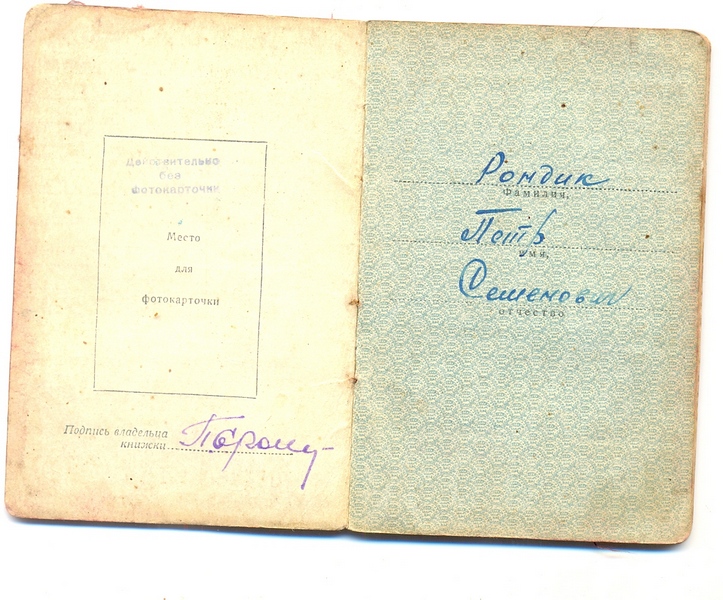 Действительно
без
фотокарточки
Место
для
фотокарточки
Подпись владельца
книжки
Рондик
Фамилия,
Петр
имя,
Семенович
отчество